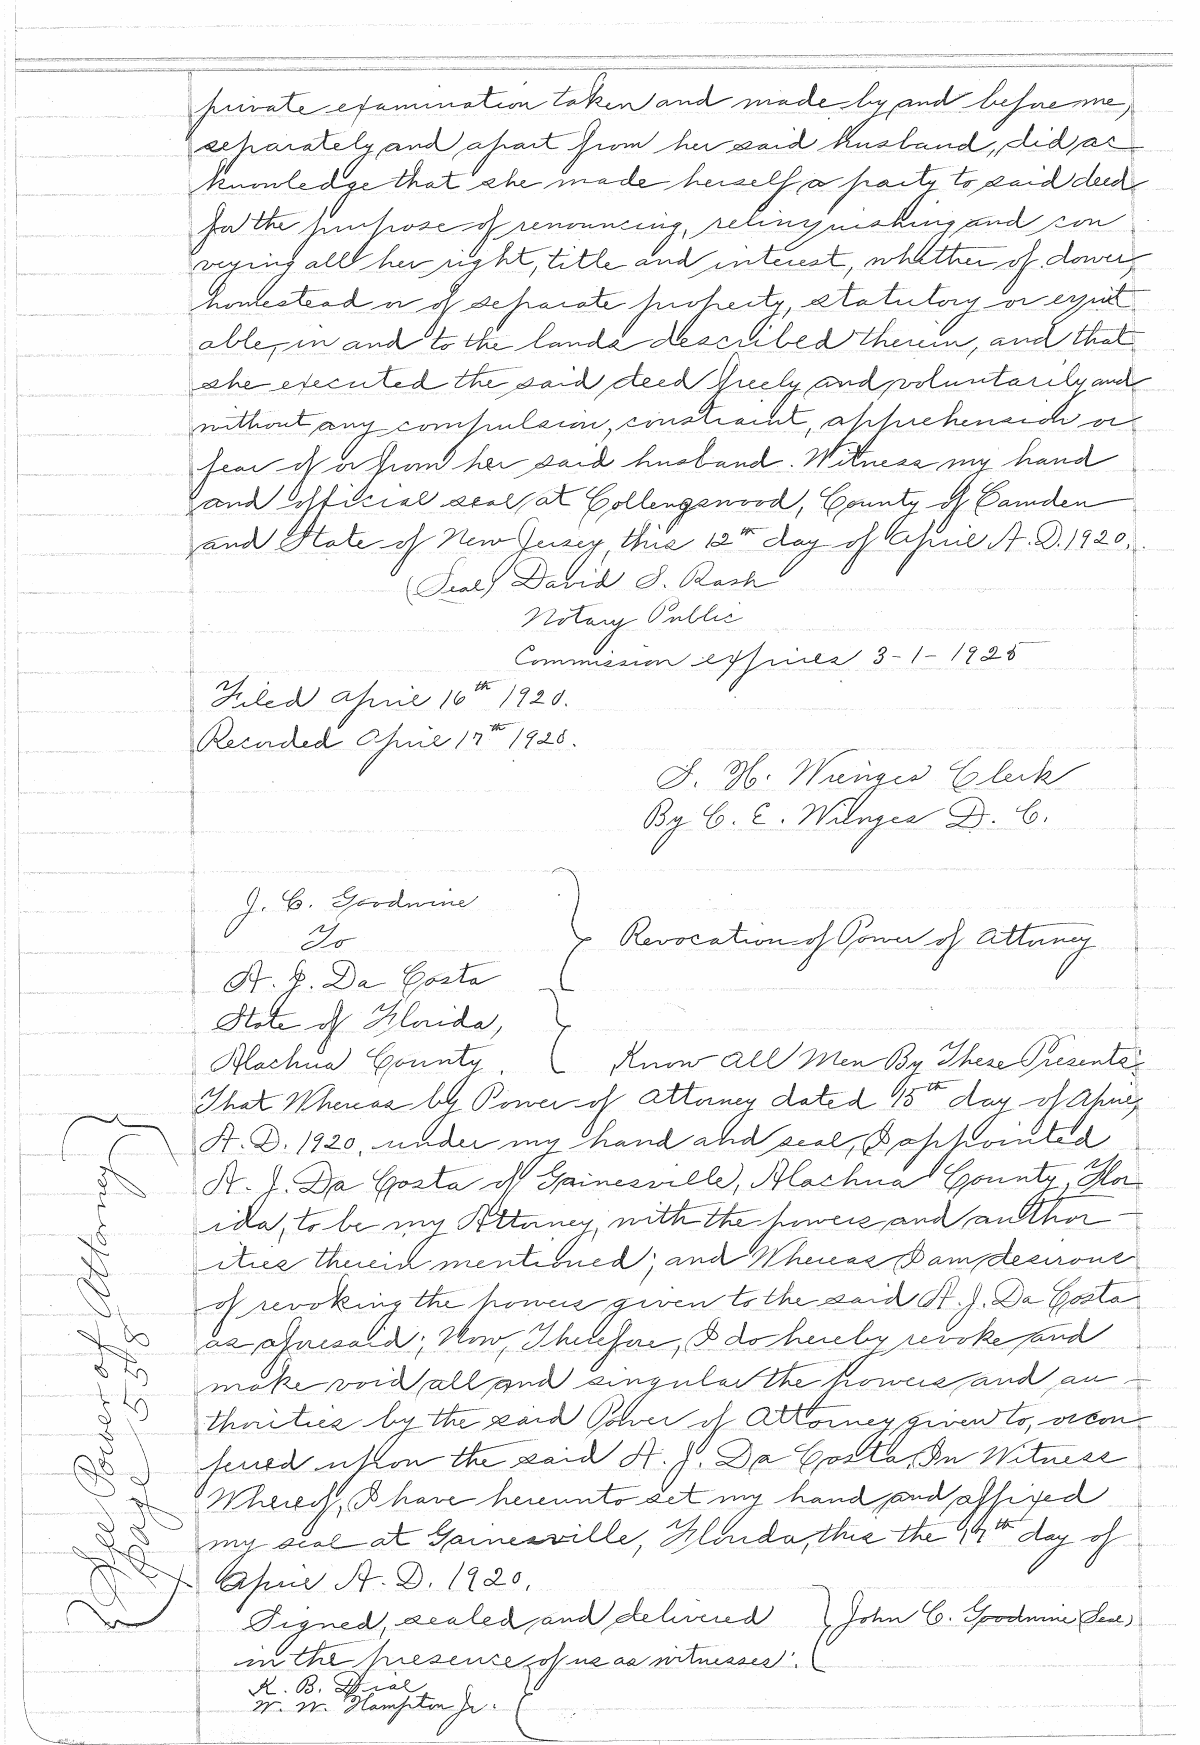 private examination taken and made by and before me,
separately and apart from her said husband, did ac
knowledge that she made herself a party to said deed
for the purpose of renouncing, relinquishing and con
veying all her right, title and interest, whether of dower,
homestead or of separate property, statutory or equit
able, in and to the lands described therein, and that
she executed the said deed freely and voluntarily and
without any compulsion, constraint, apprehension or
fear of or from her said husband. Witness my hand
and official seal at Collengswood, County of Camden
and State of New Jersey, this 12th day of April A. D. 1920.
(Seal) David S. Rash
Notary Public
Commission expires 3-1-1925
Filed April 16th 1920.
Recorded April 17th 1920.
S. H. Wienges Clerk
By C. E. Wienges D. C.
J. C. Goodwine
To
A. J. Da Costa
Revocation of Power of Attorney
State of Florida,
Alachua County.
Know All Men By These Presents:
That Whereas by Power of Attorney dated 15th day of April,
A. D. 1920, under my hand and seal, I appointed
A. J. Da Costa of Gainesville, Alachua County, Flor
ida, to be my Attorney, with the powers and author-
ities therein mentioned; and Whereas I am desirous
of revoking the powers given to the said A. J. Da Costa
as aforesaid; Now, Therefore, I do hereby revoke and
make void all and singular the powers and au-
thorities by the said Power of Attorney given to, or con
ferred upon the said A. J. Da Costa. In Witness
Whereof, I have hereunto set my hand and affixed
my seal at Gainesville, Florida, this the 17th day of
April A. D. 1920.
Signed, sealed and delivered
in the presence of us as witnesses:
John C. Goodwine (Seal)
K. B. Dial
W. W. Hampton Jr.
See Power of Attorney
Page 558